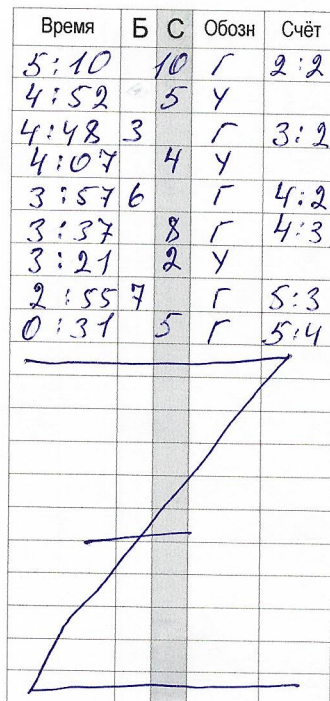 Время Б С Обозн Счёт
5:10 10 Г 2:2
4:52 5 У
4:48 3 Г 3:2
4:07 4 У
3:57 6 Г 4:2
3:37 8 Г 4:3
3:21 2 У
2:55 7 Г 5:3
0:31 5 Г 5:4